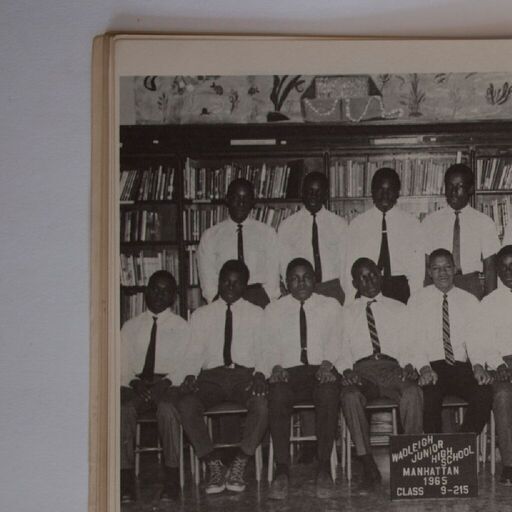 WADLEIGH
JUNIOR
HIGH
SCHOOL
MANHATTAN
1965
CLASS 9-215